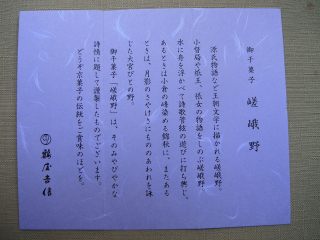 御干菓子 嵯峨野
源氏物語など王朝文学に描かれる嵯峨野、
小督局や祇王、祇女の物語をしのぶ嵯峨野、
水に舟を浮かべて詩歌管絃の遊びに打ち興じ、
あるときは小倉の峰染める錦秋に、またある
ときは、月影のさやけさにもののあわれを詠
じた大宮びとの野。
御干菓子「嵯峨野」は、そのみやびやかな
詩情に題して謹製したものでございます。
どうぞ京菓子の伝統をご賞味のほどを。
鶴屋吉信